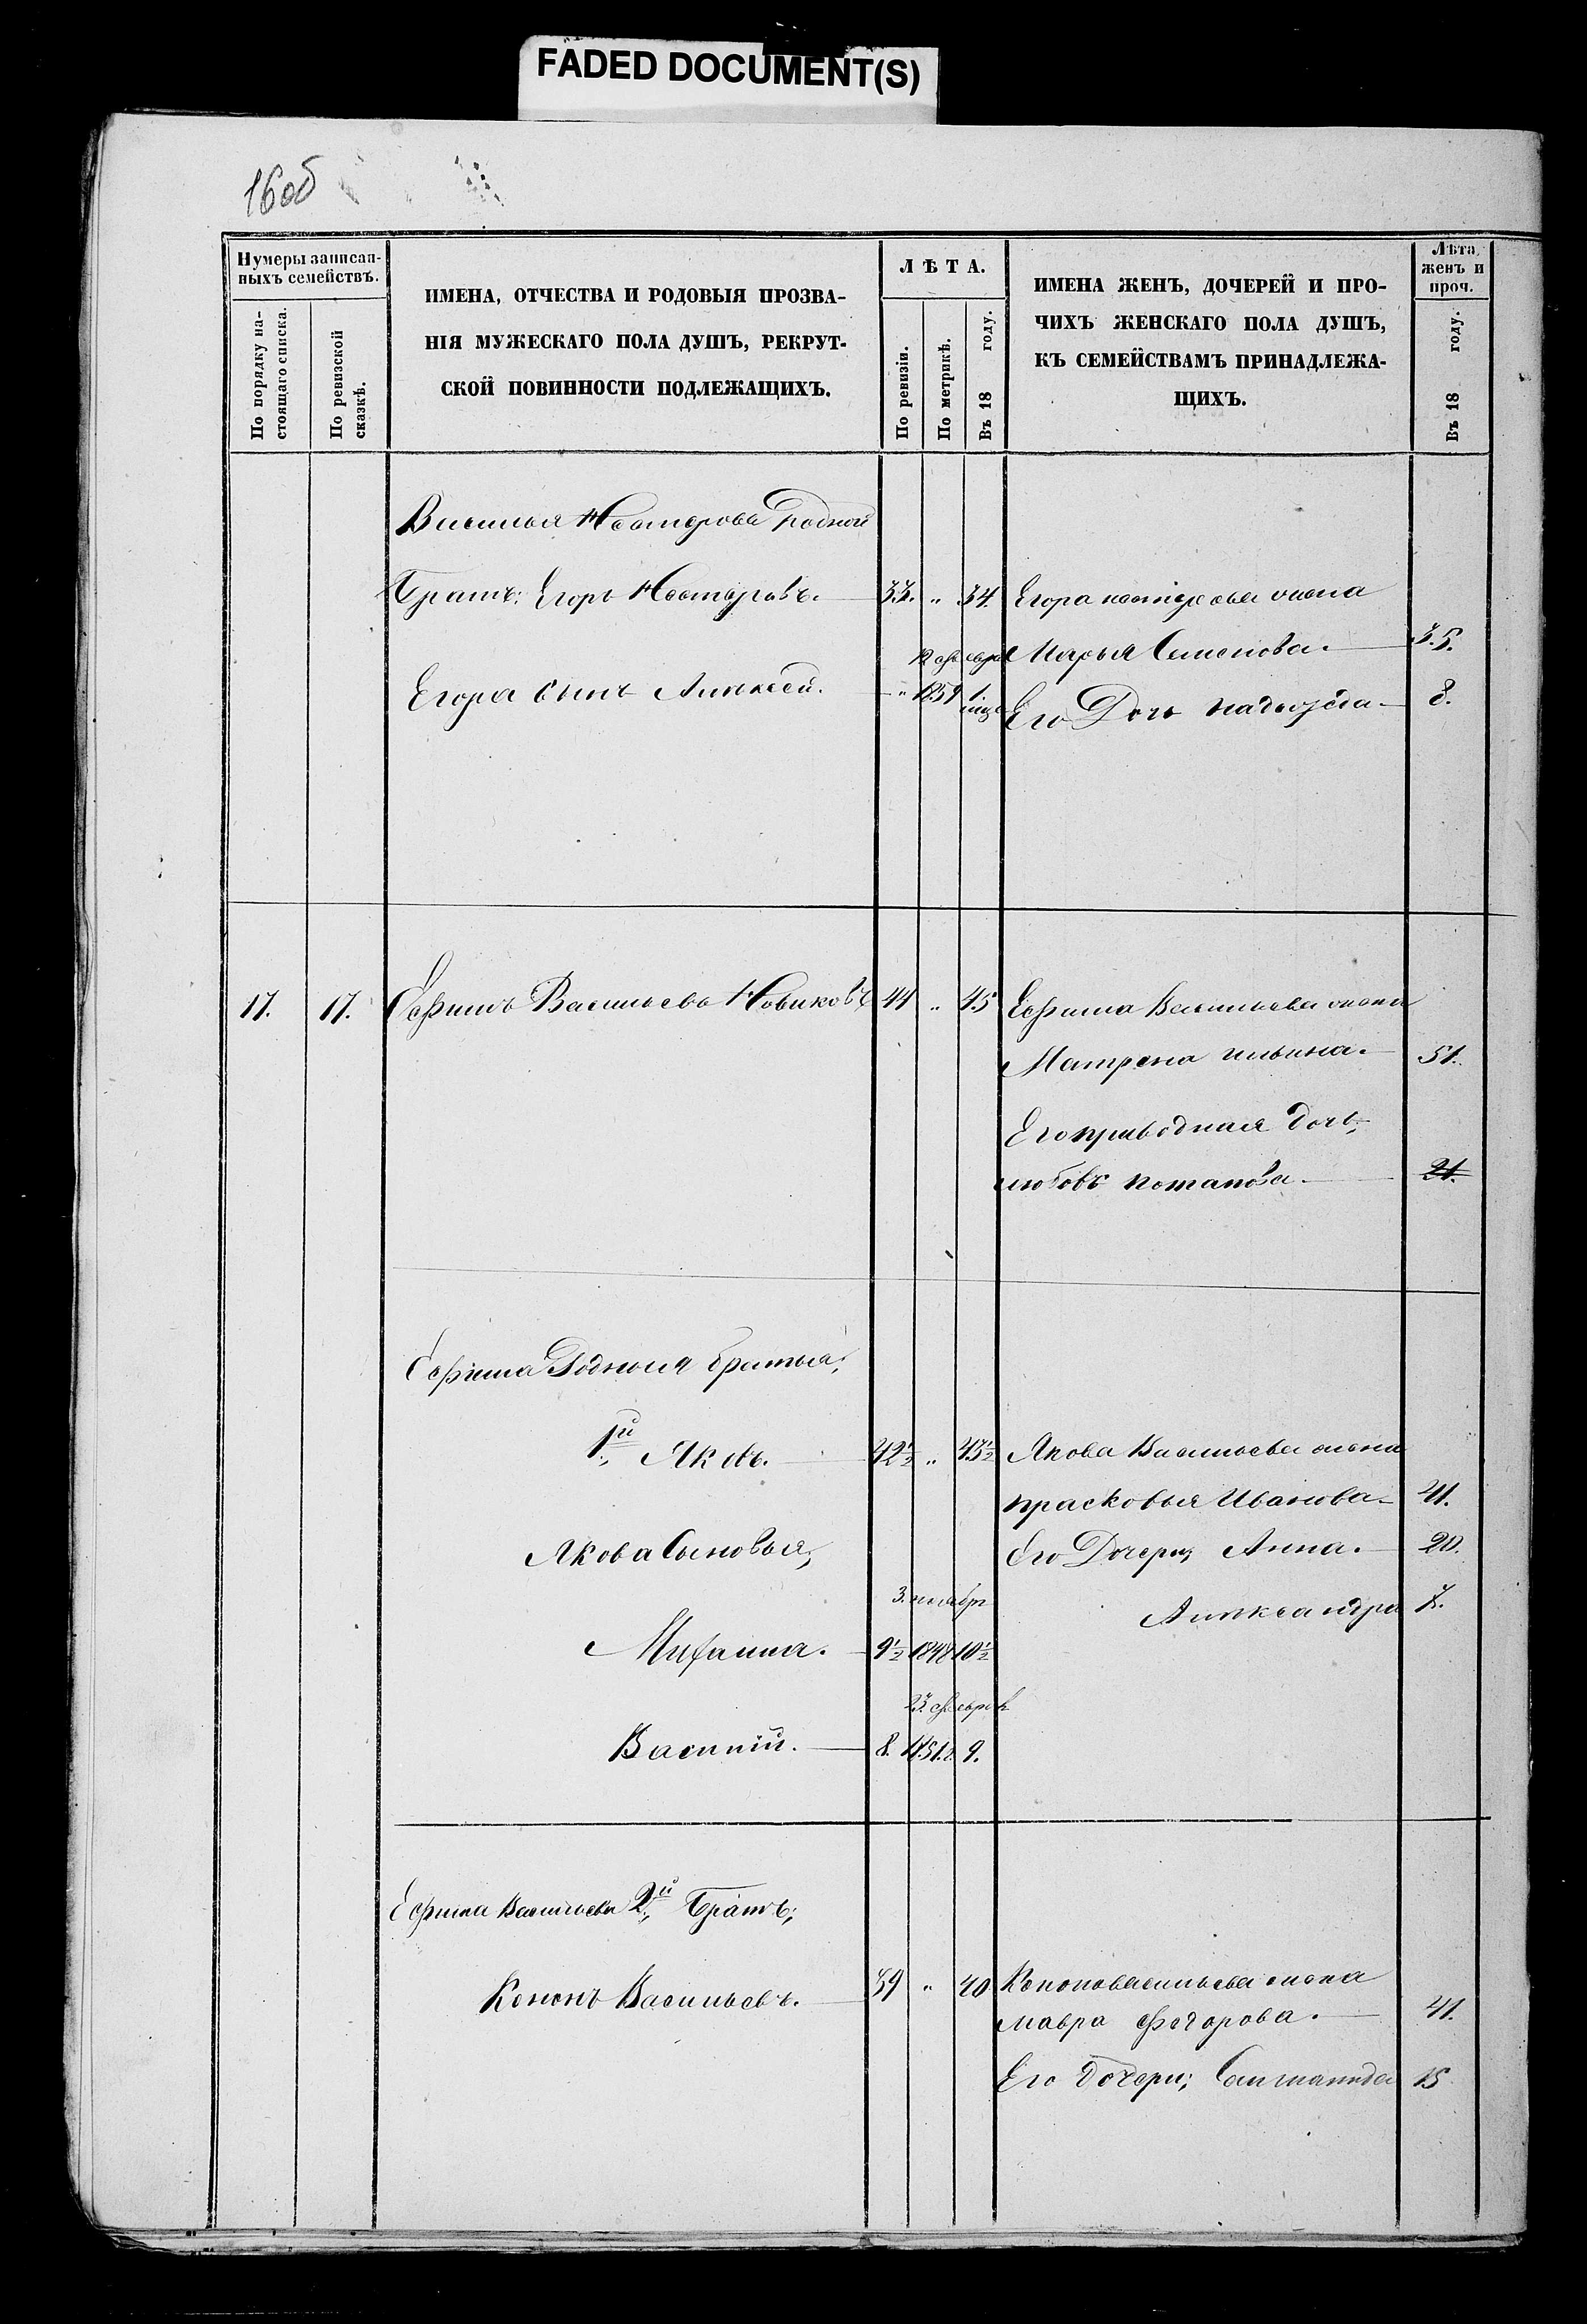 FADED DOCUMENT(S)
16об
Нумеры записан-
ныхъ семействъ.
По порядку на-
стоящаго списка.
По ревизской
сказкѣ.
ИМЕНА, ОТЧЕСТВА И РОДОВЫЯ ПРОЗВА-
НІЯ МУЖЕСКАГО ПОЛА ДУШЪ, РЕКРУТ-
СКОЙ ПОВИННОСТИ ПОДЛЕЖАЩИХЪ.
ЛѢТА.
По ревизіи.
По метрикѣ.
Въ 18 году.
ИМЕНА ЖЕНЪ, ДОЧЕРЕЙ И ПРО-
ЧИХЪ ЖЕНСКАГО ПОЛА ДУШЪ,
КЪ СЕМЕЙСТВАМЪ ПРИНАДЛЕЖА-
ЩИХЪ.
Лѣта
женъ и
проч.
Въ 18 году.
Василья Нестерова Родной
Братъ; Егоръ Нестеровъ. 33. „ 34. Егора нестерова жена
Марья Семенова. 35.
Егора сынъ Алексей. „ 1859 1. Его Дочь надежда 8.
17. 17. Ефимъ Васильевъ Новиковъ 44 „ 45 Ефима Васильева жена
Матрена ильина. 51.
Его приводная дочь;
любовь потапова. 21.
Ефима Родныя братья;
1й Яковъ. 42½ „ 43½ Якова Васильева жена
прасковья Иванова 41.
Якова Сыновья; Его Дочери; Анна. 20.
3. ноябр Александра 7.
Михаила. 9½ 1848 10½
23. февраля
Василий. 8. 1851. 9.
Ефима Васильева 2й Братъ;
Кононъ Васильевъ. 39 „ 40 Конона васильева жена
мавра федорова. 41.
Его дочери; 15